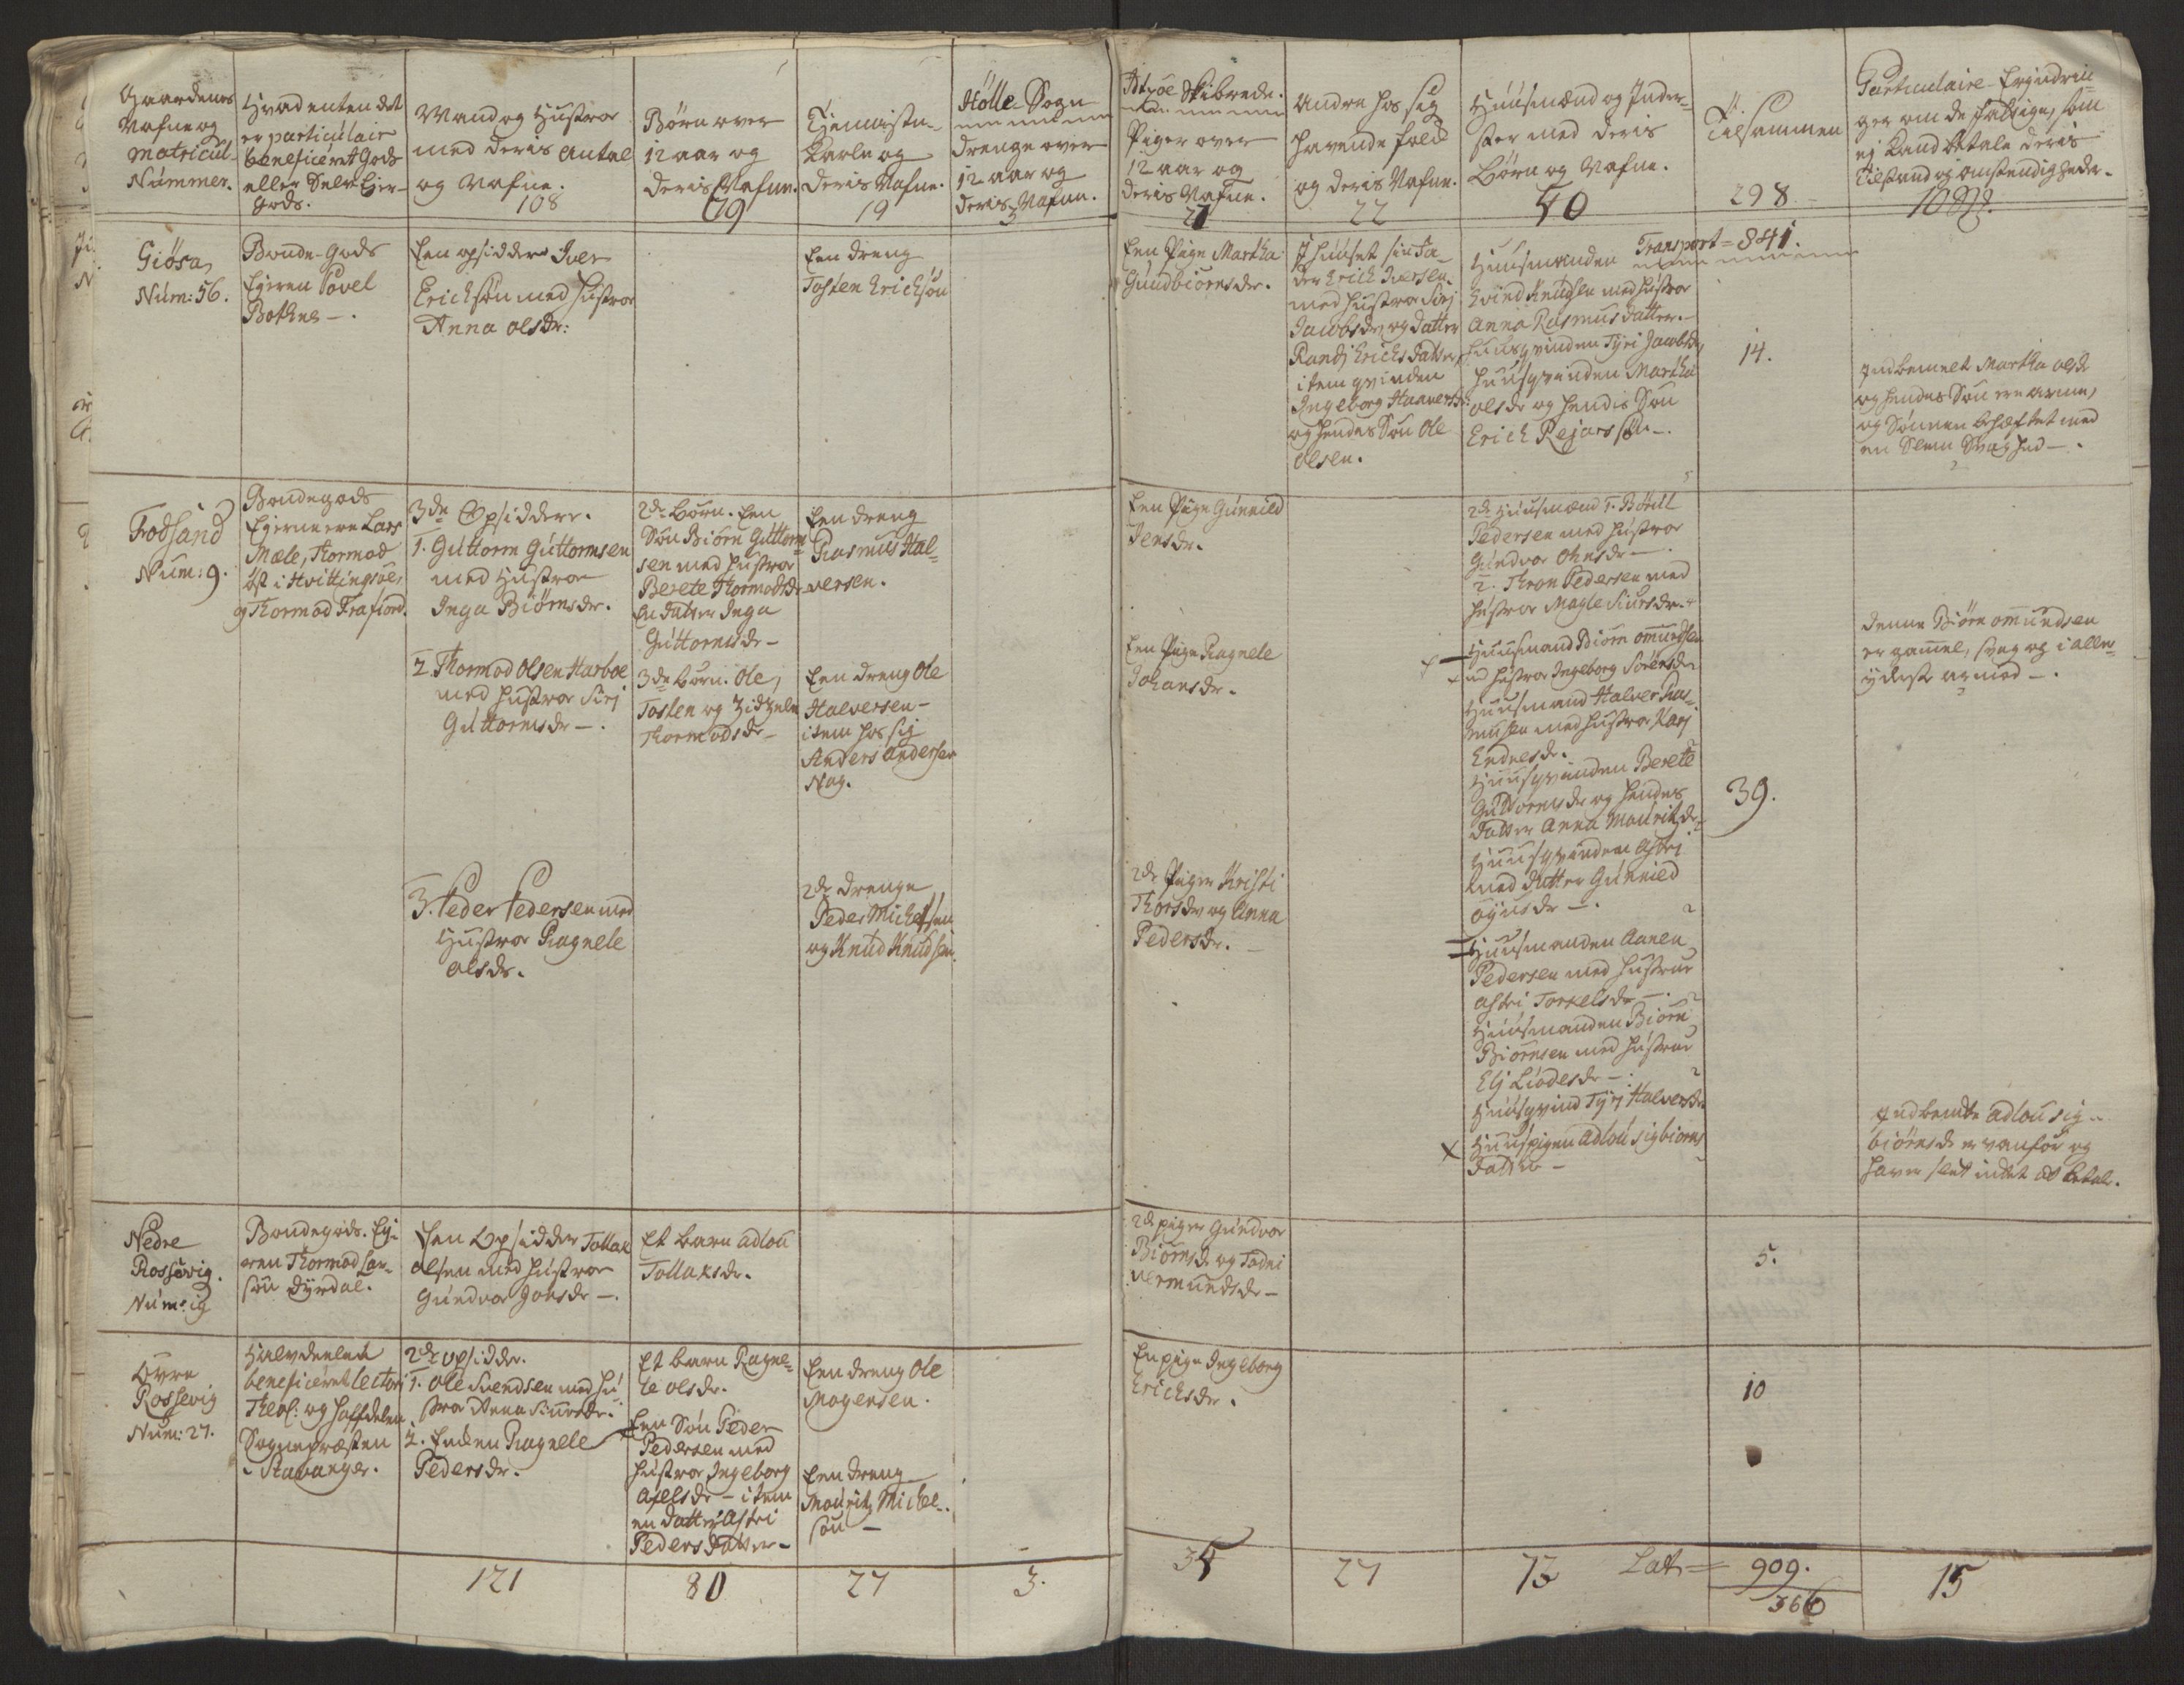 Gaardenes
Nafne og
Matricul-
Nummer.
Hvad enten det
er particulair
beneficeret Gods
eller Selv Ejer-
gods.
Mand og Hustroe
med deris Antal
og Nafne.
108
Børn over
12 aar og
deris Nafne.
79
Tjenniste-
Karle og
deris Nafne.
19
Hölle Sogn
drenge over
12 aar og
deris Nafne.
3
Skibrede.
Piger over
12 aar og
deris Nafne.
Andre hos sig
havende folk
og deris Nafne.
22
Huusmænd og Inder-
ster med deris
Børn og Nafne.
40
Tilsammen
298
Particulaire Erindrin-
ger om de fattige, som
ej kand betale deris
Tilstand og omstendigheder.
10
Transport = 841.
Giösa,
Num: 56.
Bonde-Gods
Ejeren Povel
Bothne -.
Een opsidder Iver
Erichsøn med hustroe
Anna olsdr:
Een dreng
Tosten Erichsøn
Een Pige Martha
Gundbiörnsdr.
I huuset sin Fa-
der Erich Iversen
med hustroe Siri
Jacobsdr og datter
Randj Erichsdatter,
item qvinden
Ingeborg Haaversdr:
og hendes Søn Ole
Olsen.
Huusmanden
Evind Knudsen med hustroe
Anna Rasmusdatter.
Huusqvinden Tyri Jacobsdr,
Huusqvinden Martha
olsdr og hendis Søn
Erich Rejarssøn -.
14.
Indbemelt Martha olsdr
og hendes Søn ere arme,
og Sønnen behæftet med
en Slem Svaghed -.
Fodsand
Num: 9.
Bondegods
Ejerne ere Lars
Mæle, Thormod
öst i Hvittingsöe,
og Thormod Frafiord.
3de Opsiddere.
1. Guttorm Guttormsen
med Hustroe
Inga Biörnsdr.
2. Thormod Olsen Harboe
med hustroe Siri
Guttormsdr -.
3. Peder Pedersen med
Hustroe Ragnele
olsdr.
2de Børn. Een
Søn Biörn Guttorm-
sen med hustroe
Berete Thormodsdr
En datter Inga
Guttormsdr -
3de Børn. Ole,
Tosten og Zidzele
Thormodsdr -
Een dreng
Rasmus Hal-
versen.
Een dreng Ole
Halversen -
item hos sig
Anders Andersen
Nag.
2de drenge
Peder Michelsen
og Knud Knudsen.
Een Pige Gunnild
Jensdr.
Een Pige Ragnele
Johansdr.
2de Piger Kristi
Thorsdr og Anna
Pedersdr. -
2de Huusmænd 1. Börül
Pedersen med hustroe
Gundvor Ohnsdr -.
2. Thron Pedersen med
hustroe Magle Siursdr.
Huusmand Biörn omundsen
med hustroe Ingeborg Sörensdr
Huusmand Halver Ras-
musen med hustroe Kari
Endresdr.
Huusqvinden Berete
Guttormsdr og hendes
datter Anna Mouritzdr
Huusqvinden Astri
med datter Gunnild
Oyusdr -.
Huusmanden Aanen
Pedersen med hustrue
Astri Torkelsdr -.
Huusmanden Biörn
Biörnsen med hustrue
Elj Liodesdr -.
Huusqvind Tyri Halversdr
x Huuspigen Adlou Sigbiorns
datter -
39.
denne Biörn omundsen
er gammel, svag og i aller-
yderste armod -.
Indbemte Adlou Sig-
biörnsdr er vanför og
haver slet intet at betale.
Nedre
Rossevig.
Num: 19
Bondegods. Eji-
eren Thormod Lar-
søn dyrdal.
Een Opsidder Tollak
olsen med hustroe
Gundvor Jonsdr -.
Et barn Adlou
Tollaksdr.
2de piger Gundvor
Biörnsdr og Todni
Vermundsdr -
5.
Övre
Rossevig
Num: 27.
Halvdeelen
beneficeret lectori
Theol: og halfdelen
Sognepræsten
i Stavanger.
2de Opsiddr.
1. Ole Svendsen med hu-
stroe Anna Siursdr.
2. Enken Ragnele
Pedersdr.
Et barn Ragne-
le Olsdr.
Een Søn Peder
Pedersen med
hustroe Ingeborg
Axelsdr - item
en datter Astri
Pedersdatter -
Een dreng Ole
Mogensen.
Een dreng
Mouritz Michel-
søn -
En pige Ingeborg
Erichsdr.
10
121
80
27
3.
34
27
73
Lat = 909.
366
15